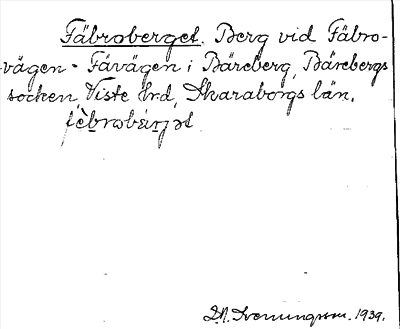 Fäbroberget. Berg vid Fäbro-
vägen - Fävägen i Bäreberg, Bärebergs
socken, Viste hrd, Skaraborgs län.
fèbrobárjət
1939.